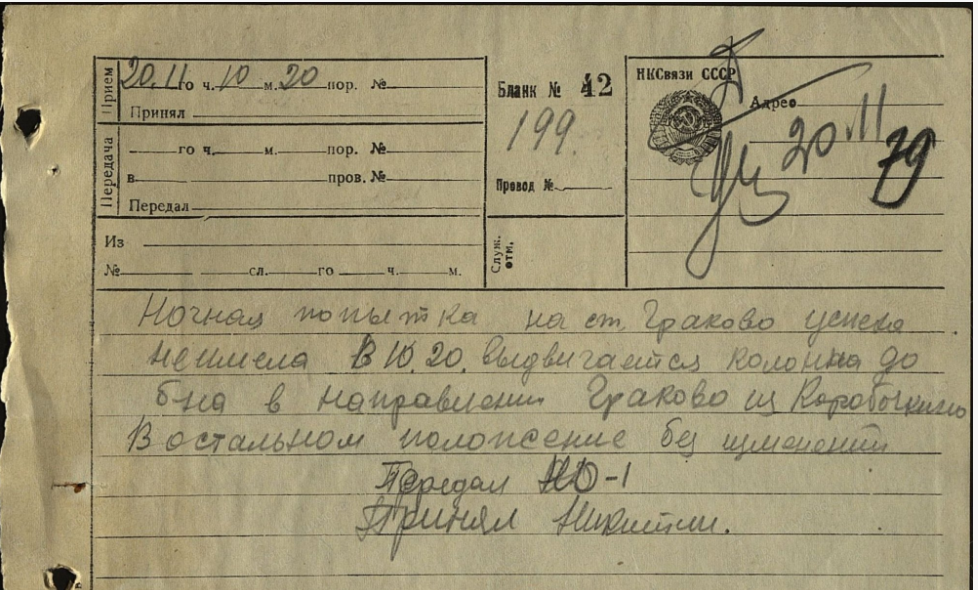 Прием
20.11го ч. 10 м. 20 пор. №
Принял
Передача
го ч. м. пор. №
в. пров. №
Передал
Из
№ сл. го ч. м.
Бланк № 42
199.
Провод №
Служ. отм.
НКСвязи СССР
Адрес
20.11
79
Ночная попытка на ст. Граково успеха
не имела В 10.20. выдвигается колонна до
б-на в направлении Граково из Коробочкино
В остальном положение без изменений
Передал НО-1
Принял Никитин.